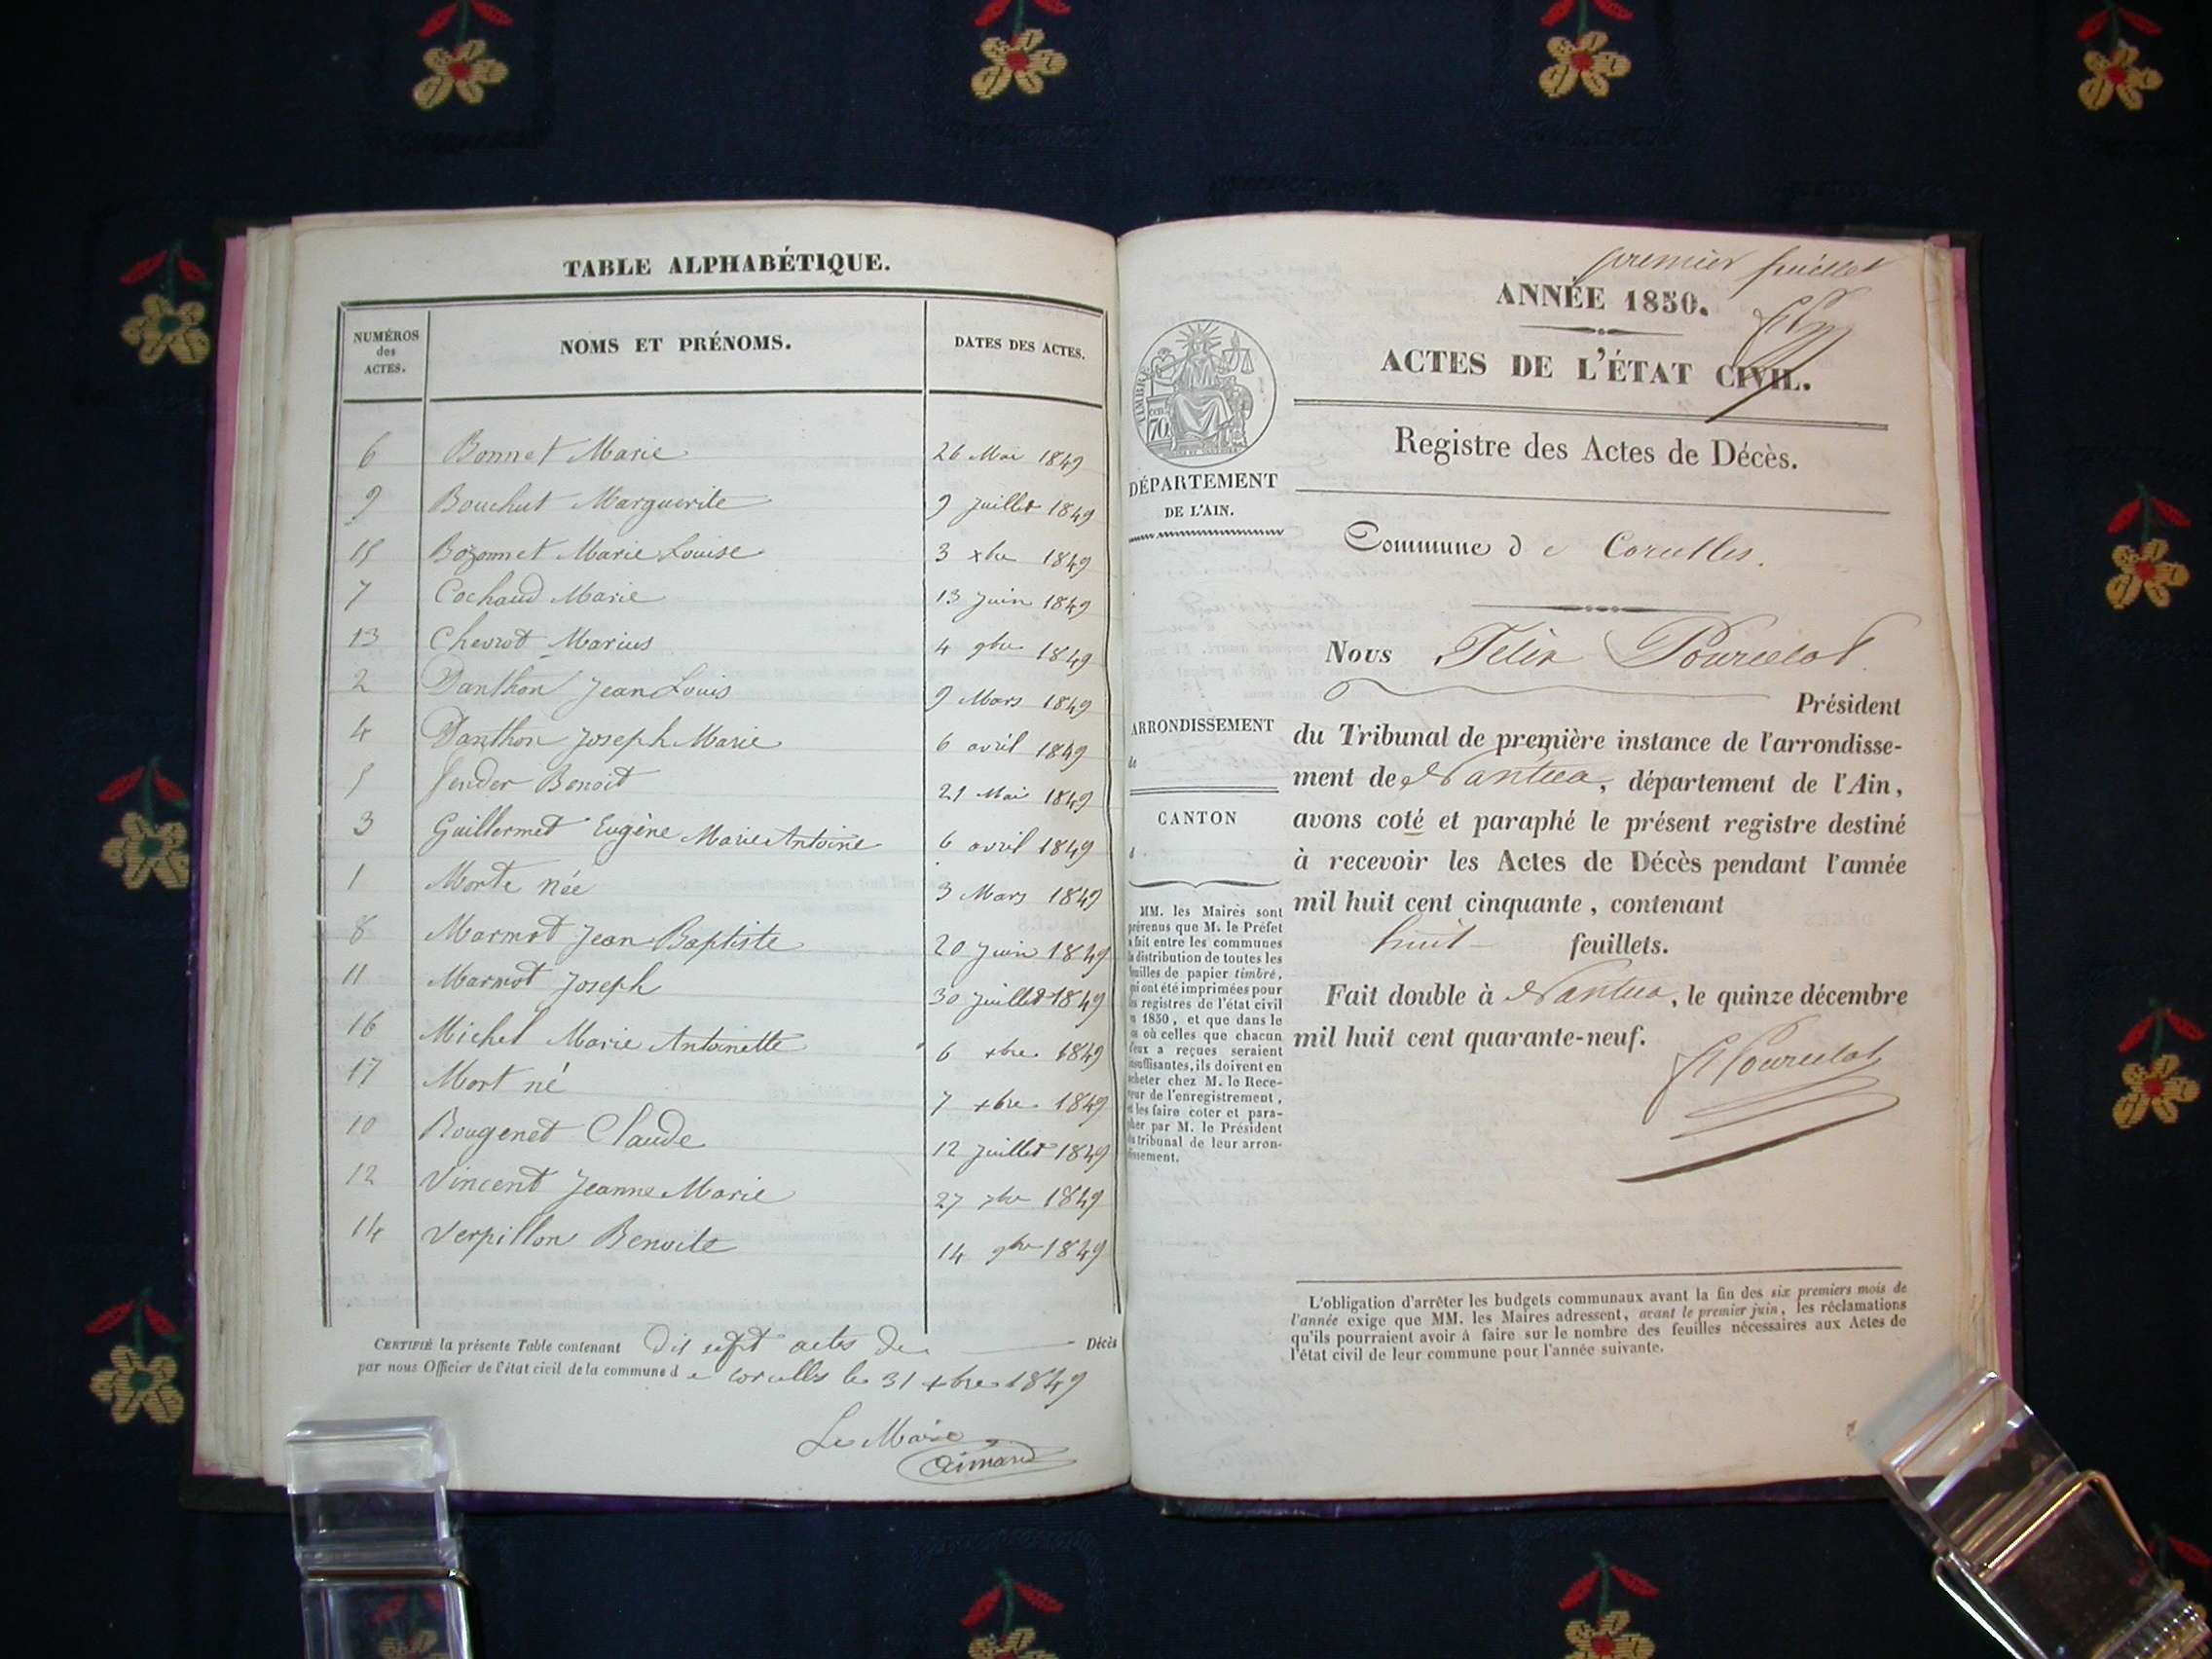 TABLE ALPHABÉTIQUE.
NUMÉROS
des
ACTES.
NOMS ET PRÉNOMS.
DATES DES ACTES.
6 Bonnet Marie 26 Mai 1849
9 Bouchut Marguerite 9 Juillet 1849
15 Bozonnet Marie Louise 3 xbre 1849
7 Cochaud Marie 13 Juin 1849
13 Chevrot Marius 4 9bre 1849
2 Danthon Jean Louis 9 Mars 1849
4 Danthon Joseph Marie 6 avril 1849
5 Fender Benoit 21 Mai 1849
3 Guillermet Eugène Marie Antoine 6 avril 1849
1 Morte née 3 Mars 1849
8 Marmot Jean Baptiste 20 Juin 1849
11 Marmot Joseph 30 Juillet 1849
16 Michel Marie Antoinette 6 xbre 1849
17 Mort né 7 xbre 1849
10 Rougenet Claude 12 Juillet 1849
12 Vincent Jeanne Marie 27 7bre 1849
14 Verpillon Benoite 14 9bre 1849
CERTIFIÉ la présente Table contenant Dix sept actes de Décès
par nous Officier de l'état civil de la commune d e Corcelles le 31 xbre 1849
Le Maire
Aimard
premier feuillet
ANNÉE 1850.
ACTES DE L'ÉTAT CIVIL.
TIMBRE
70
DÉPARTEMENT
DE L'AIN.
Registre des Actes de Décès.
Commune d e Corcelles.
Nous Félix Pourcelot
Président
du Tribunal de première instance de l'arrondisse-
ment de Nantua, département de l'Ain,
avons coté et paraphé le présent registre destiné
à recevoir les Actes de Décès pendant l'année
mil huit cent cinquante, contenant
huit feuillets.
Fait double à Nantua, le quinze décembre
mil huit cent quarante-neuf.
F Pourcelot
ARRONDISSEMENT
de
CANTON
d
MM. les Maires sont
prévenus que M. le Préfet
a fait entre les communes
la distribution de toutes les
feuilles de papier timbré,
qui ont été imprimées pour
les registres de l'état civil
n 1850, et que dans le
cas où celles que chacun
d'eux a reçues seraient
insuffisantes, ils doivent en
acheter chez M. le Rece-
veur de l'enregistrement,
et les faire coter et para-
pher par M. le Président
du tribunal de leur arron-
dissement.
L'obligation d'arrêter les budgets communaux avant la fin des six premiers mois de
l'année exige que MM. les Maires adressent, avant le premier juin, les réclamations
qu'ils pourraient avoir à faire sur le nombre des feuilles nécessaires aux Actes de
l'état civil de leur commune pour l'année suivante.